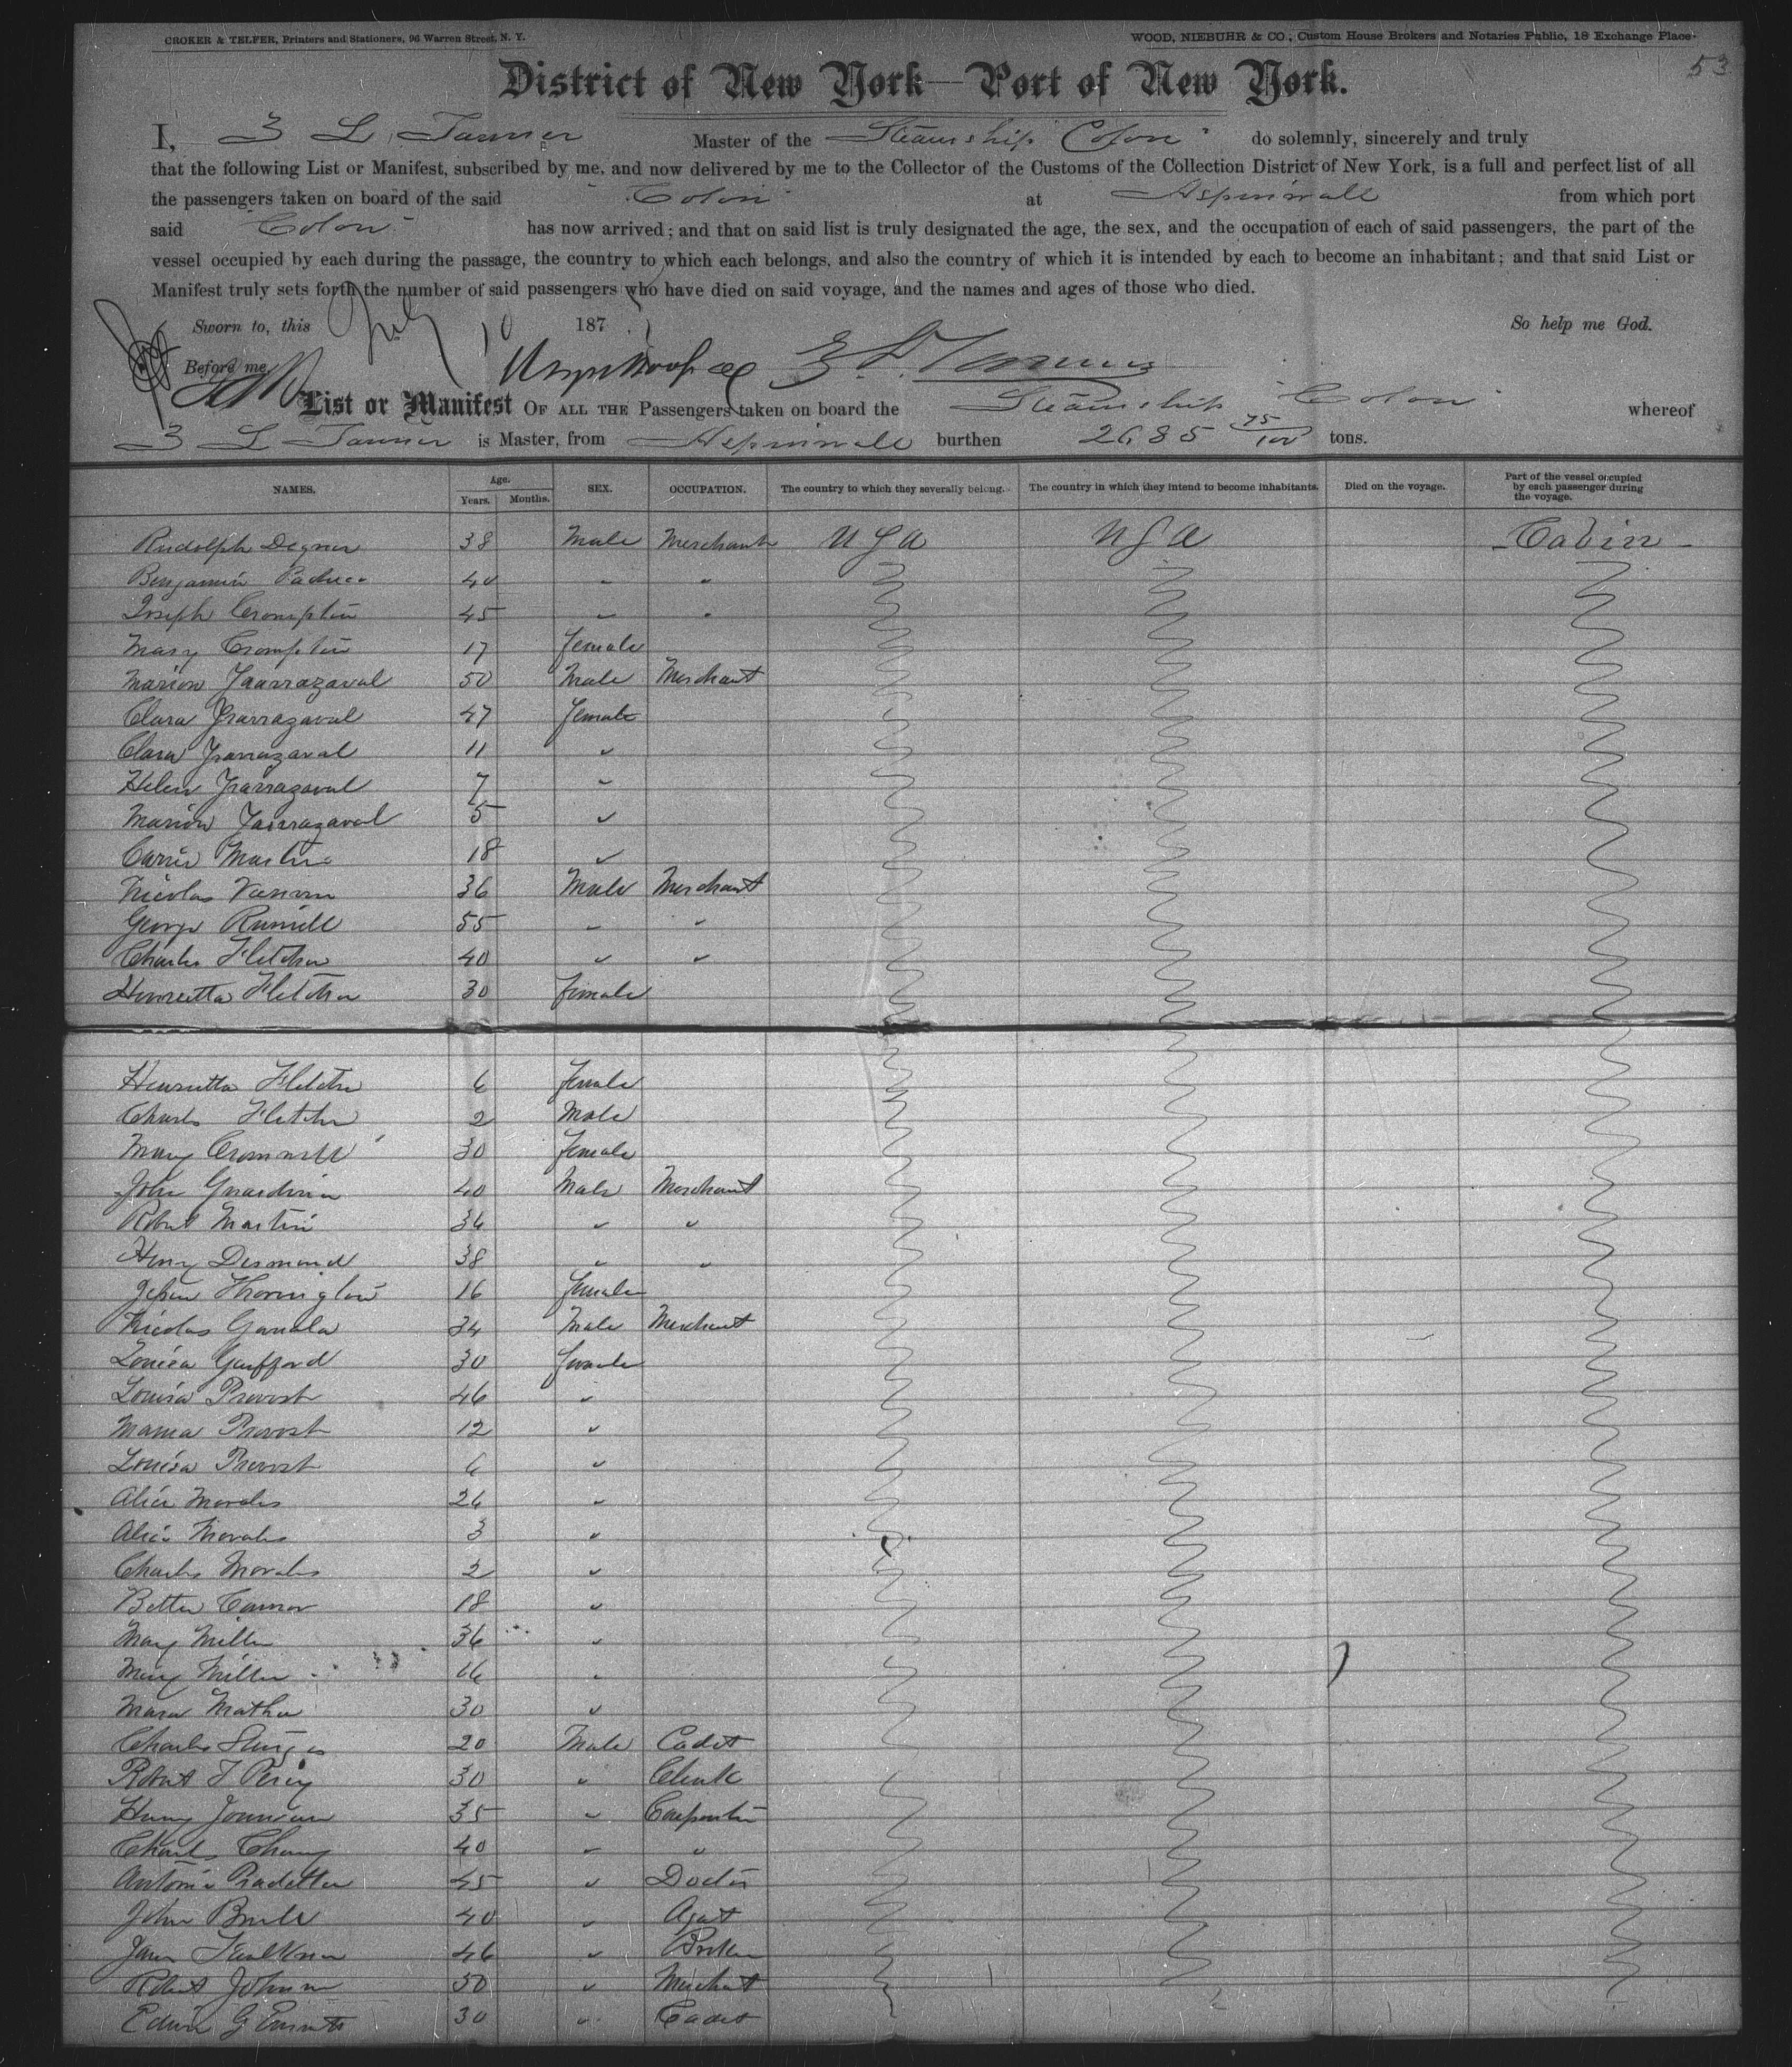 CROKER & TELFER, Printers and Stationers, 96 Warren Street, N. Y. WOOD, NIEBUHR & CO., Custom House Brokers and Notaries Public, 18 Exchange Place.
53
District of New York—Port of New York.
I, Z L Tanner Master of the Steamship "Colon" do solemnly, sincerely and truly
that the following List or Manifest, subscribed by me, and now delivered by me to the Collector of the Customs of the Collection District of New York, is a full and perfect list of all
the passengers taken on board of the said "Colon" at Aspinwall from which port
said "Colon" has now arrived; and that on said list is truly designated the age, the sex, and the occupation of each of said passengers, the part of the
vessel occupied by each during the passage, the country to which each belongs, and also the country of which it is intended by each to become an inhabitant; and that said List or
Manifest truly sets forth the number of said passengers who have died on said voyage, and the names and ages of those who died.
Sworn to, this July 10 187 So help me God.
Before me, Z. L. Tanner
List or Manifest OF ALL THE Passengers taken on board the Steamship "Colon" whereof
Z L Tanner is Master, from Aspinwall burthen 2685 75/100 tons.
NAMES. Age. Years. Months. SEX. OCCUPATION. The country to which they severally belong. The country in which they intend to become inhabitants. Died on the voyage. Part of the vessel occupied by each passenger during the voyage.
Rudolph Degner 38 Male Merchant U S A U S A Cabin
Benjamin Pacheco 40 " "
Joseph Crompton 45 " "
Mary Crompton 17 female
Marion Yrarrazaval 50 Male Merchant
Clara Yrarrazaval 47 female
Clara Yrarrazaval 11 "
Helen Yrarrazaval 7 "
Marion Yrarrazaval 5 "
Carrie 18 "
Nicolas 36 Male Merchant
George 55 " "
Charles Fletcher 40 " "
Henrietta Fletcher 30 female
Henrietta Fletcher 6 female
Charles Fletcher 2 Male
Mary Cromwell 30 female
John 40 Male Merchant
Robert Martin 36 " "
Henry Desmond 38 " "
Thorington 16 female
Nicolas 34 Male Merchant
Louisa Gufford 30 female
Louisa Provost 46 "
Mama Provost 12 "
Louisa Provost 6 "
Alice Morales 26 "
Alice Morales 3 "
Charles Morales 2 "
Bettie Connor 18 "
Mary Miller 36 "
Mary Miller 16 "
Mara Mather 30 "
Charles Sturges 20 Male Cadet
Robert F Percy 30 " Clerk
Henry 35 " Carpenter
Charles Chang 40 " "
Antonio 45 " Doctor
John 40 " Agent
Faulkner 46 " Broker
Robert Johnson 50 " Merchant
Edwin G 30 " Cadet